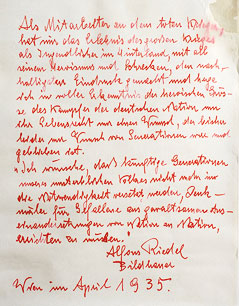 Als Mitarbeiter an dem toten Krieger
hat mir das Erlebnis des großen Krieges
als Jugendlicher im Hinterland, mit all
seinem Heroismus und Schrecken, den nach-
haltigsten Eindruck gemacht und habe
ich in voller Erkenntnis der heroischen Grö-
sse des Kampfes der deutschen Nation um
ihr Lebensrecht nur einen Wunsch, der bisher
leider ein Wunsch von Generationen war und
geblieben ist.
"Ich wünsche, dass künftige Generationen
unseres unsterblichen Volkes nicht mehr in
die Notwendigkeit versetzt werden, Denk-
mäler für Gefallene aus gewaltsamen Aus-
einandersetzungen von Nation zu Nation,
errichten zu müssen."
Alfons Riedel
Bildhauer
Wien im April 1935.